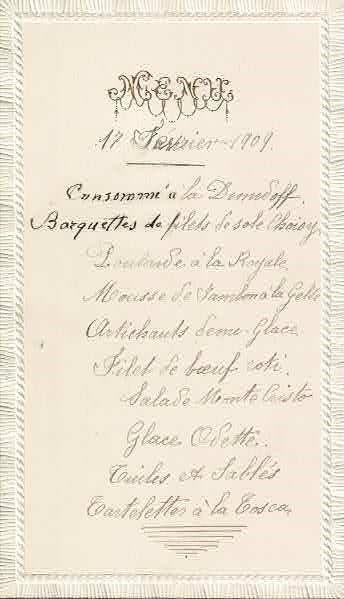 MENU
17 Février 1909.
Consommé à la Demidoff.
Barquettes de filets de sole Choisy
Poularde à la Royale.
Mousse de Jambon à la Gelée
Artichauts demi-Glace
Filet de bœuf roti.
Salade Monte Cristo
Glace Odette.
Tuiles et Sablés
Tartelettes à la Tosca